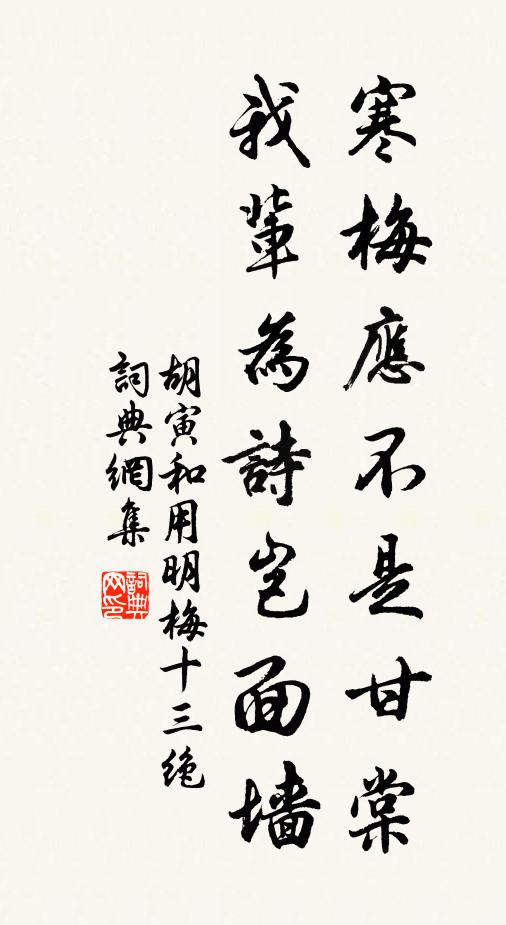 寒梅應不是甘棠
我輩為詩豈面墻
胡寅和用明梅十三絶
詞典網集
詞典网印